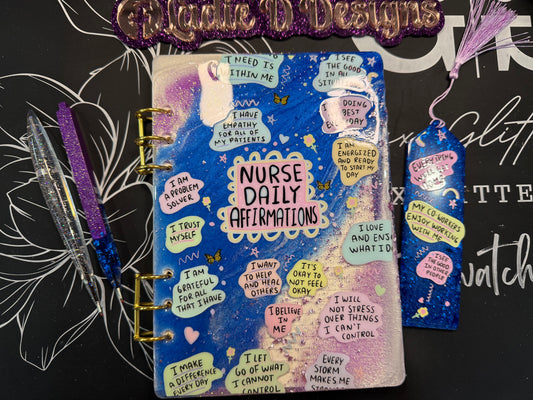 Ladie D Designs
I NEED IS
WITHIN ME
I SEE
THE GOOD
IN ALL
I HAVE
EMPATHY
FOR ALL OF
MY PATIENTS
DOING
BEST
DAY
I AM
ENERGIZED
AND READY
TO START MY
DAY
I AM
A PROBLEM
SOLVER
NURSE
DAILY
AFFIRMATIONS
I TRUST
MYSELF
I LOVE
AND ENJ
WHAT I D
I AM
GRATEFUL
FOR ALL
THAT I HAVE
I WANT
TO HELP
AND HEAL
OTHERS
IT'S
OKAY TO
NOT FEEL
OKAY
I BELIEVE
IN ME
I WILL
NOT STRESS
OVER THINGS
I CAN'T
CONTROL
I MAKE
A DIFFERENCE
EVERY DAY
I LET
GO OF WHAT
I CANNOT
CONTROL
EVERY
STORM
MAKES ME
EVERYTHING
MY CO WORKERS
ENJOY WORKING
WITH ME
I SEE
THE GOOD
IN OTHER
PEOPLE
watch